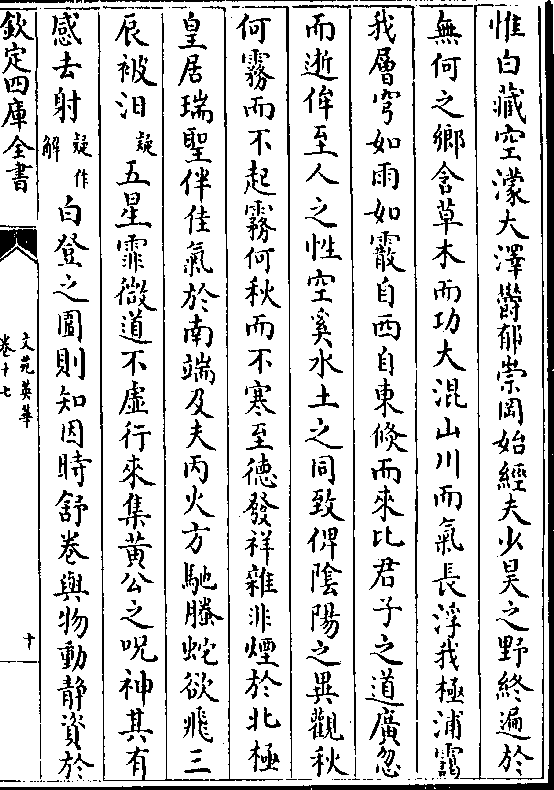 惟白藏空濛大澤欝郁崇岡始經夫少昊之野終遍於
無何之鄉含草木而功大混山川而氣長浮我極浦靄
我層穹如雨如霰自西自東倐而來比君子之道廣忽
而逝侔至人之性空奚水土之同致俾陰陽之異觀秋
何霧而不起霧何秋而不寒至德發祥雜非煙於北極
皇居瑞聖伴佳氣於南端及夫丙火方馳螣蛇欲飛三
辰被汨疑五星霏微道不虛行來集黃公之呪神其有
感去射疑作解白登之圍則知因時舒卷與物動静資於
欽定四庫全書
文苑英華
卷十七
十